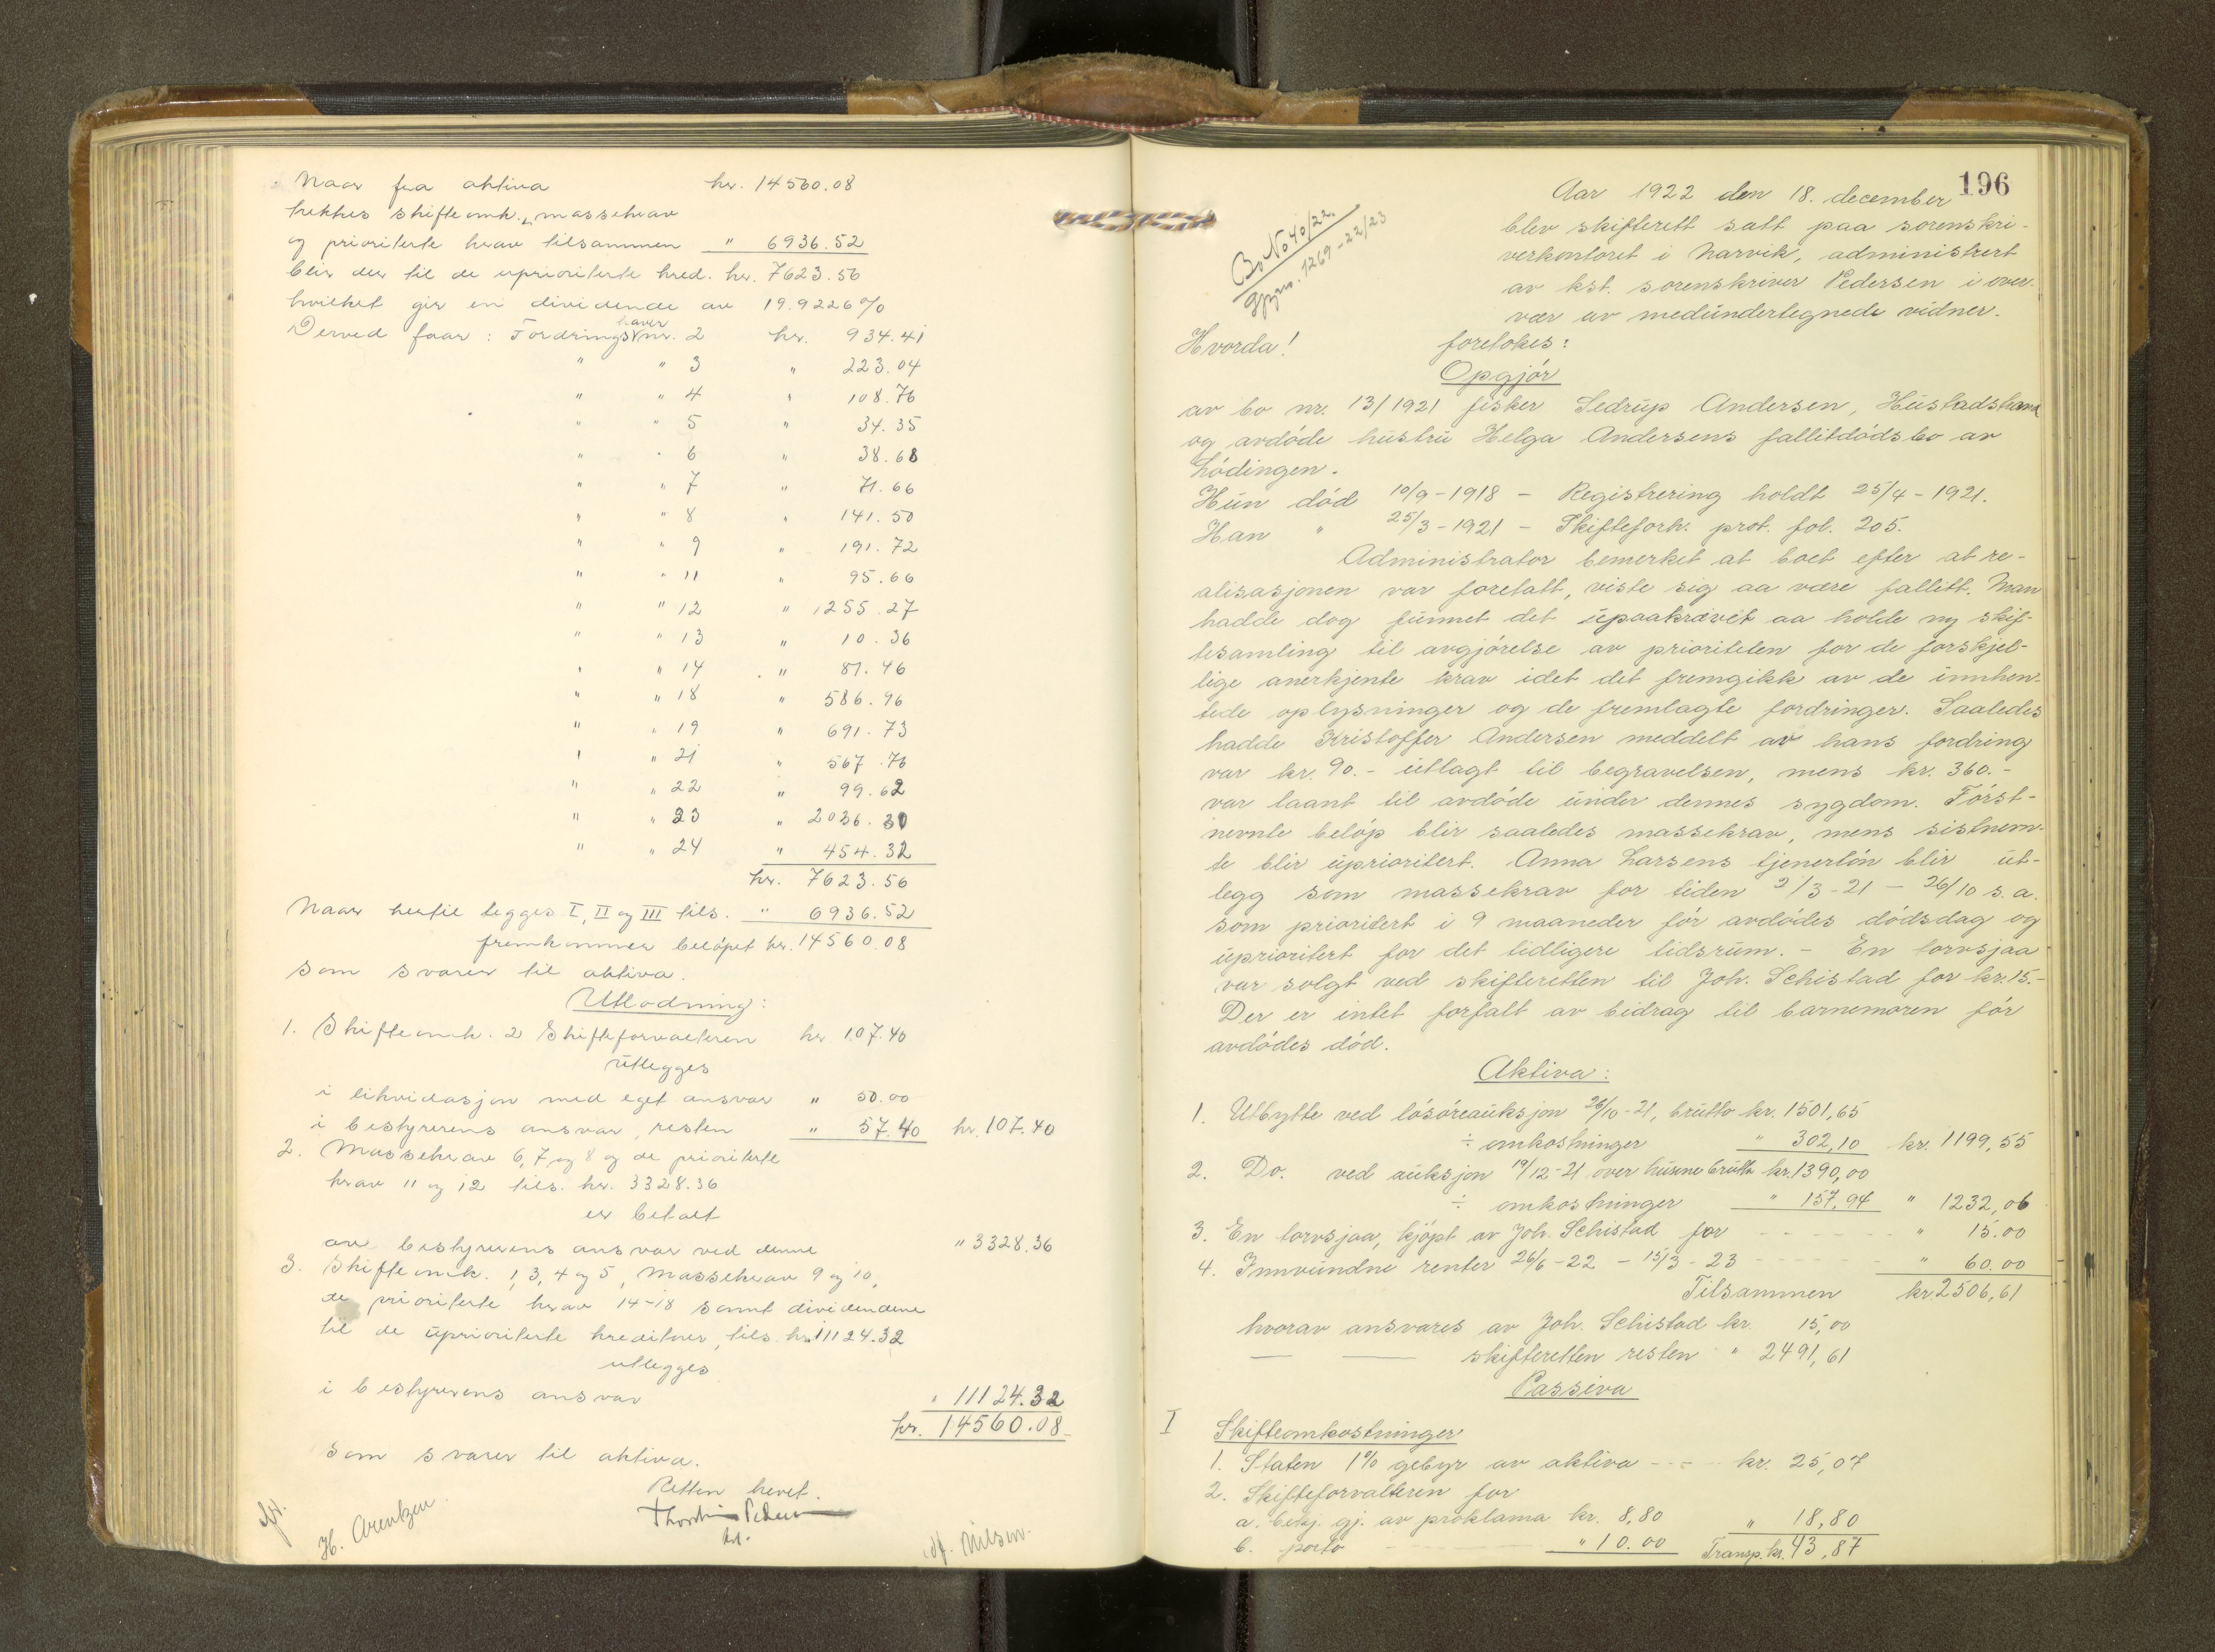 Naar fra aktiva kr. 14560.08
trekkes skifteomk., massekrav
og prioriterte krav tilsammen " 6936.52
blir der til de uprioriterte kred. kr. 7623.56
hvilket gir en dividende av 19.9226%
Derved faar: Fordringshaver nr. 2 kr. 934.41
" " 3 " 223.04
" " 4 " 108.76
" " 5 " 34.35
" " 6 " 38.68
" " 7 " 71.66
" " 8 " 141.50
" " 9 " 191.72
" " 11 " 95.66
" " 12 " 1255.27
" " 13 " 10.36
" " 14 " 81.46
" " 18 " 586.96
" " 19 " 691.73
" " 21 " 567.76
" " 22 " 99.62
" " 23 " 2036.30
" " 24 " 454.32
kr. 7623.56
Naar hertil legges I, II og III tils. " 6936.52
fremkommer beløpet kr. 14560.08
som svarer til aktiva.
Utlodning:
1. Skifteomk. 2 Skifteforvalteren kr. 107.40
utlegges
i likvidasjon med eget ansvar " 50.00
i bestyrerens ansvar, resten " 57.40 kr. 107.40
2. Massekrav 6, 7 og 8 og de prioriterte
krav 11 og 12 tils. kr. 3328.36
er betalt
av bestyrerens ansvar ved denne " 3328.36
3. Skifteomk. 1, 3, 4 og 5, Massekrav 9 og 10,
de prioriterte krav 14-18 samt dividendene
til de uprioriterte kreditorer, tils. kr. 11124.32
utlegges
i bestyrerens ansvar " 11124.32
kr. 14560.08
som svarer til aktiva.
Retten hevet.
Pedersen
kst.
H. Arentzen. Nilsen.
196
Bo No 40/22.
Gjpr. 1269-22/23
Aar 1922 den 18. december
blev skifterett satt paa sorenskri-
verkontoret i Narvik, administrert
av kst. sorenskriver Pedersen i over-
vær av medundertegnede vidner.
Hvorda! foretokes:
Opgjør
av bo nr. 13/1921 fisker Sedrup Andersen, Hustadstrand
og avdøde hustru Helga Andersens fallitdødsbo av
Lødingen.
Hun død 10/9-1918 - Registrering holdt 25/4-1921.
Han " 25/3-1921 - Skifteforh. prot. fol. 205.
Administrator bemerket at boet efter at re-
alisasjonen var foretatt, viste sig aa være fallitt. Man
hadde dog funnet det upaakrævet aa holde ny skif-
tesamling til avgjørelse av prioriteten for de forskjel-
lige anerkjente krav idet det fremgikk av de innhen-
tede oplysninger og de fremlagte fordringer. Saaledes
hadde Kristoffer Andersen meddelt av hans fordring
var kr. 90.- utlagt til begravelsen, mens kr. 360.-
var laant til avdøde under dennes sygdom. Først-
nevnte beløp blir saaledes massekrav, mens sistnevn-
te blir uprioritert. Anna Larsens tjenerløn blir ut-
legg som massekrav for tiden 2/3-21 - 26/10 s.a.
som prioritert i 9 maaneder før avdødes dødsdag og
uprioritert for det tidligere tidsrum. - En torvsjaa
var solgt ved skifteretten til Joh. Schistad for kr. 15.-
Der er intet forfalt av bidrag til barnemoren før
avdødes død.
Aktiva:
1. Utbytte ved løsøreauksjon 26/10-21, brutto kr. 1501,65
÷ omkostninger " 302,10 kr. 1199,55
2. Do. ved auksjon 19/12-21 over husene brutto kr. 1390,00
÷ omkostninger " 157,94 " 1232,06
3. En torvsjaa, kjøpt av Joh. Schistad for " 15.00
4. Innvundne renter 26/6-22 - 15/3-23 " 60.00
Tilsammen kr. 2506,61
hvorav ansvares av Joh. Schistad kr. 15,00
skifteretten resten " 2491,61
Passiva
I Skifteomkostninger
1. Staten 1% gebyr av aktiva kr. 25,07
2. Skifteforvalteren for
a. bekj. gj. av proklama kr. 8,80
b. porto " 10.00 " 18,80
Transp. kr. 43,87